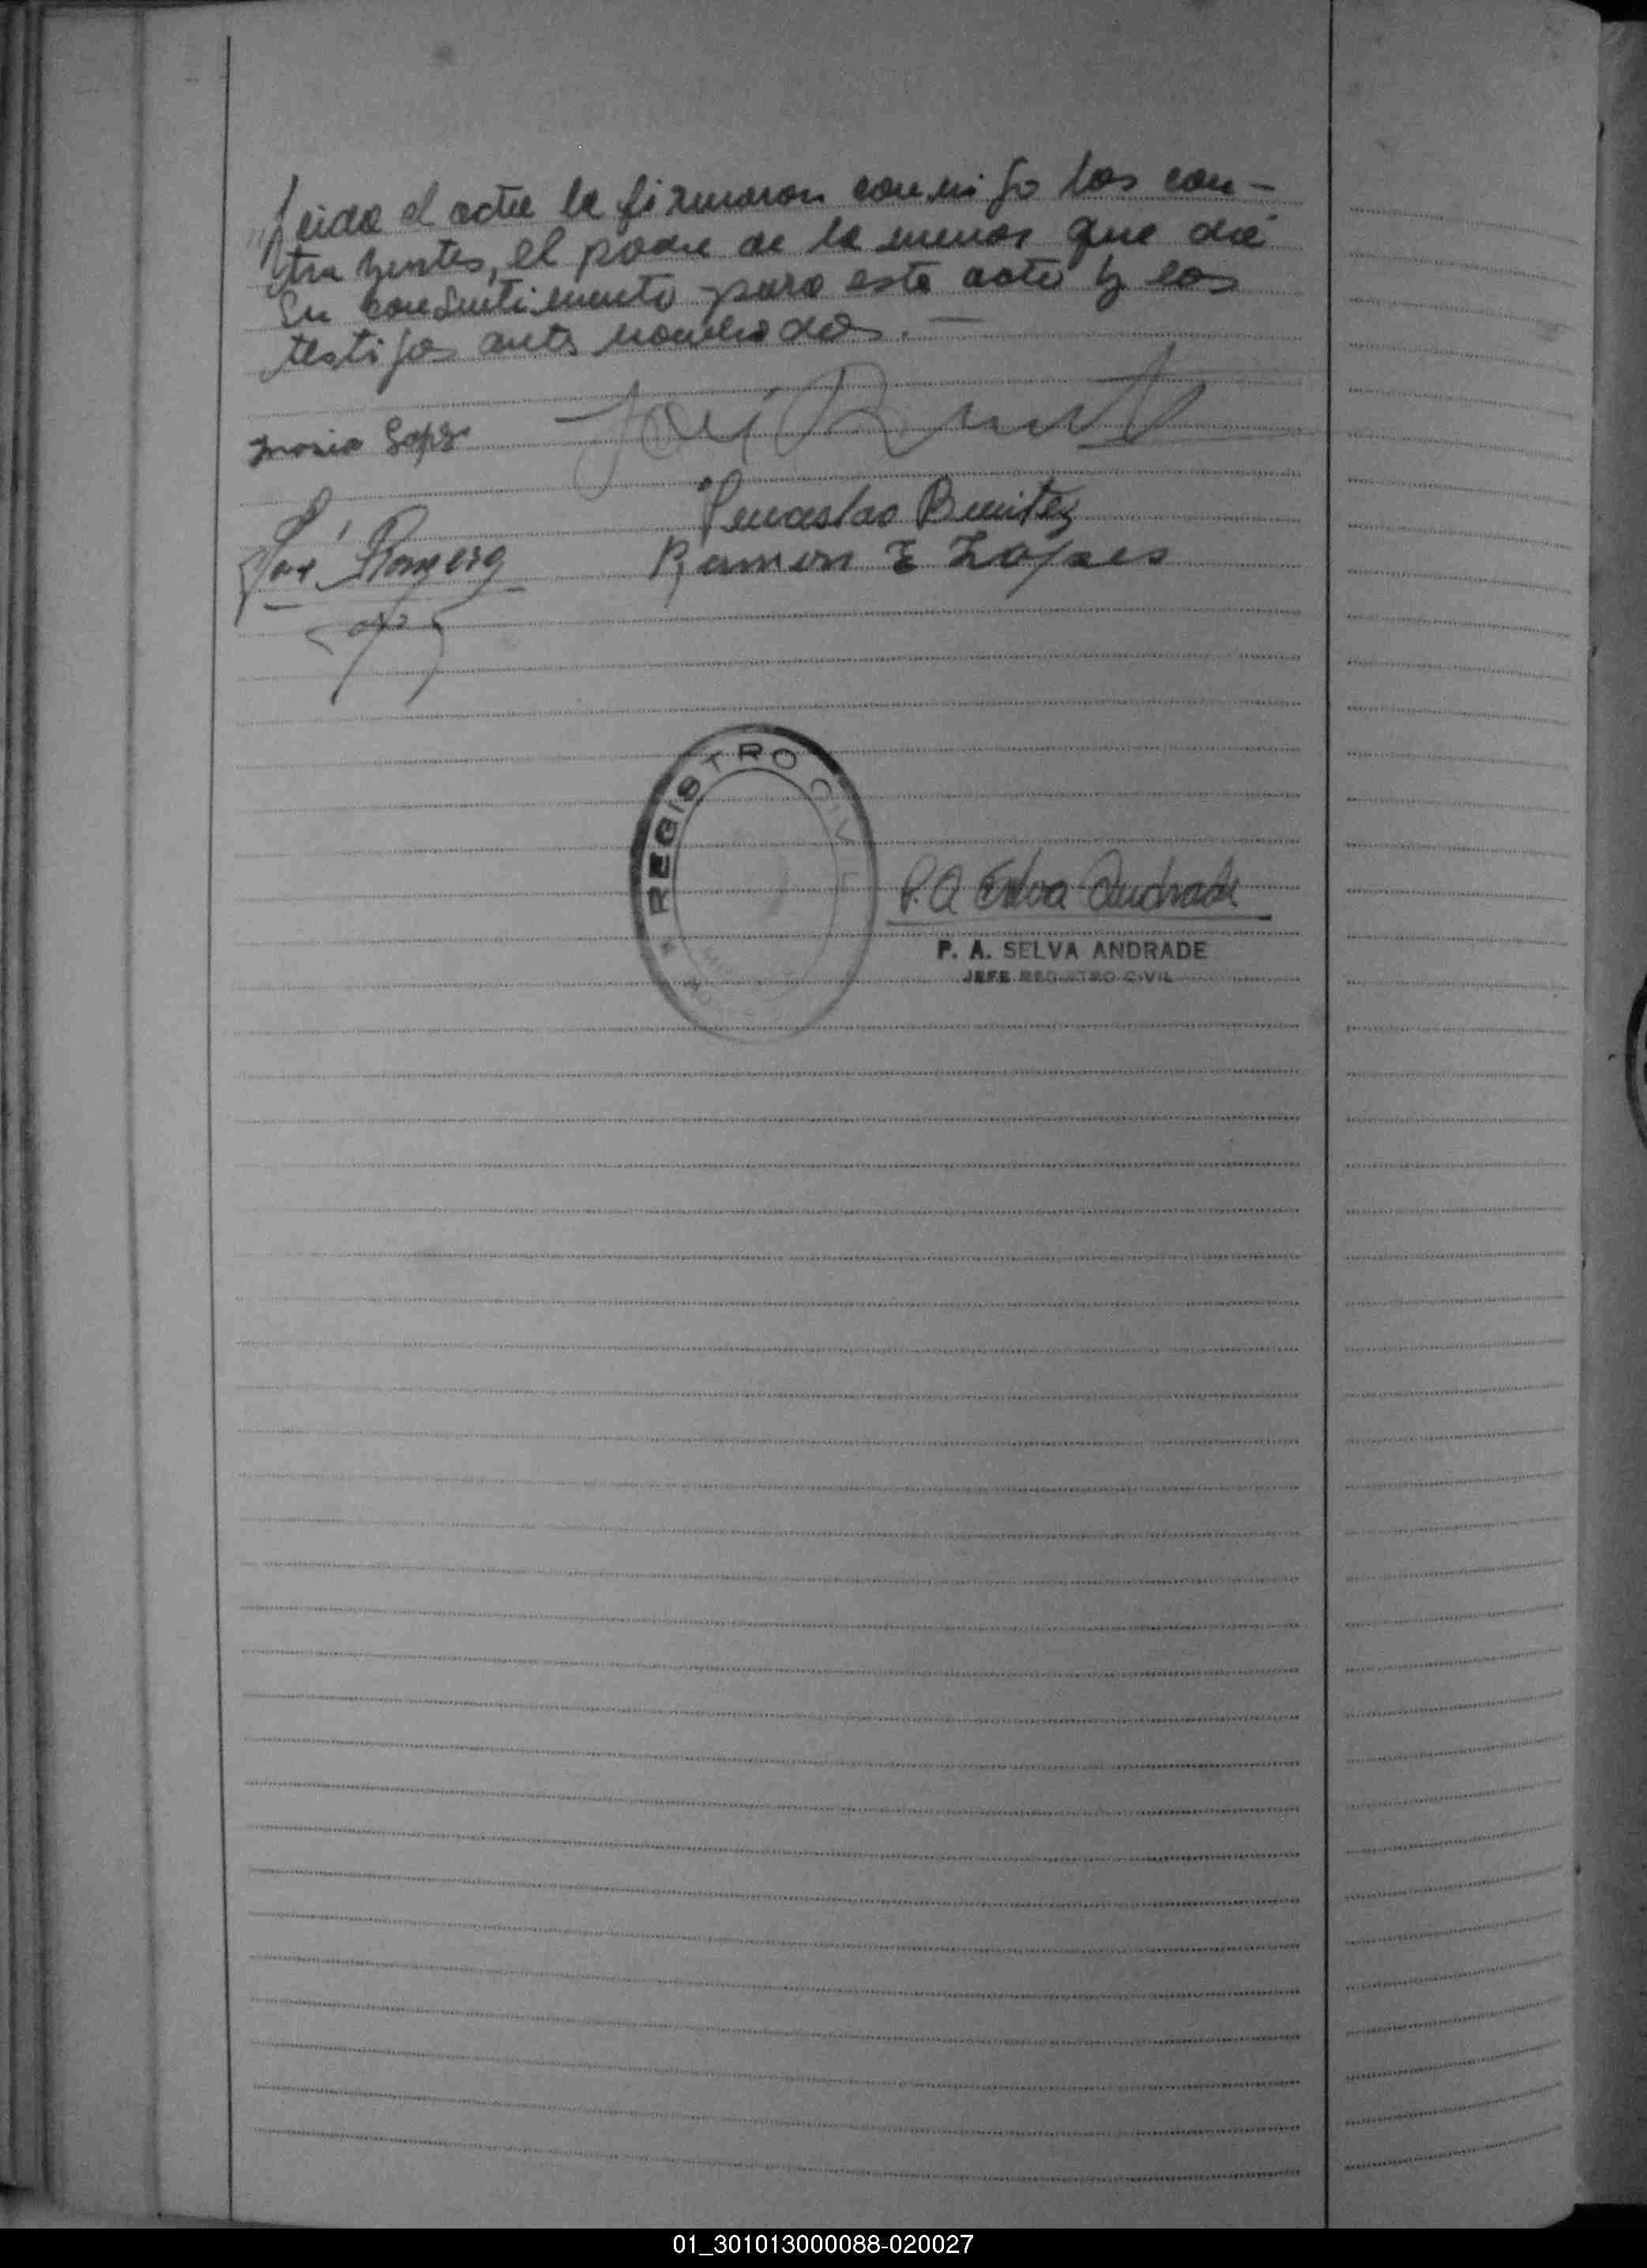 Leida el acta la firmaron conmigo los con-
trayentes, el padre de la menor que dió
su consentimiento para este acto y los
testigos antes nombrados. —
Maria Lopez
José Benit
Wenceslao Benitez
José Romero
Ramon E Lopes
REGISTRO CIVIL
P. A. Selva Andrade
P. A. SELVA ANDRADE
JEFE REGISTRO CIVIL
01_301013000088-020027